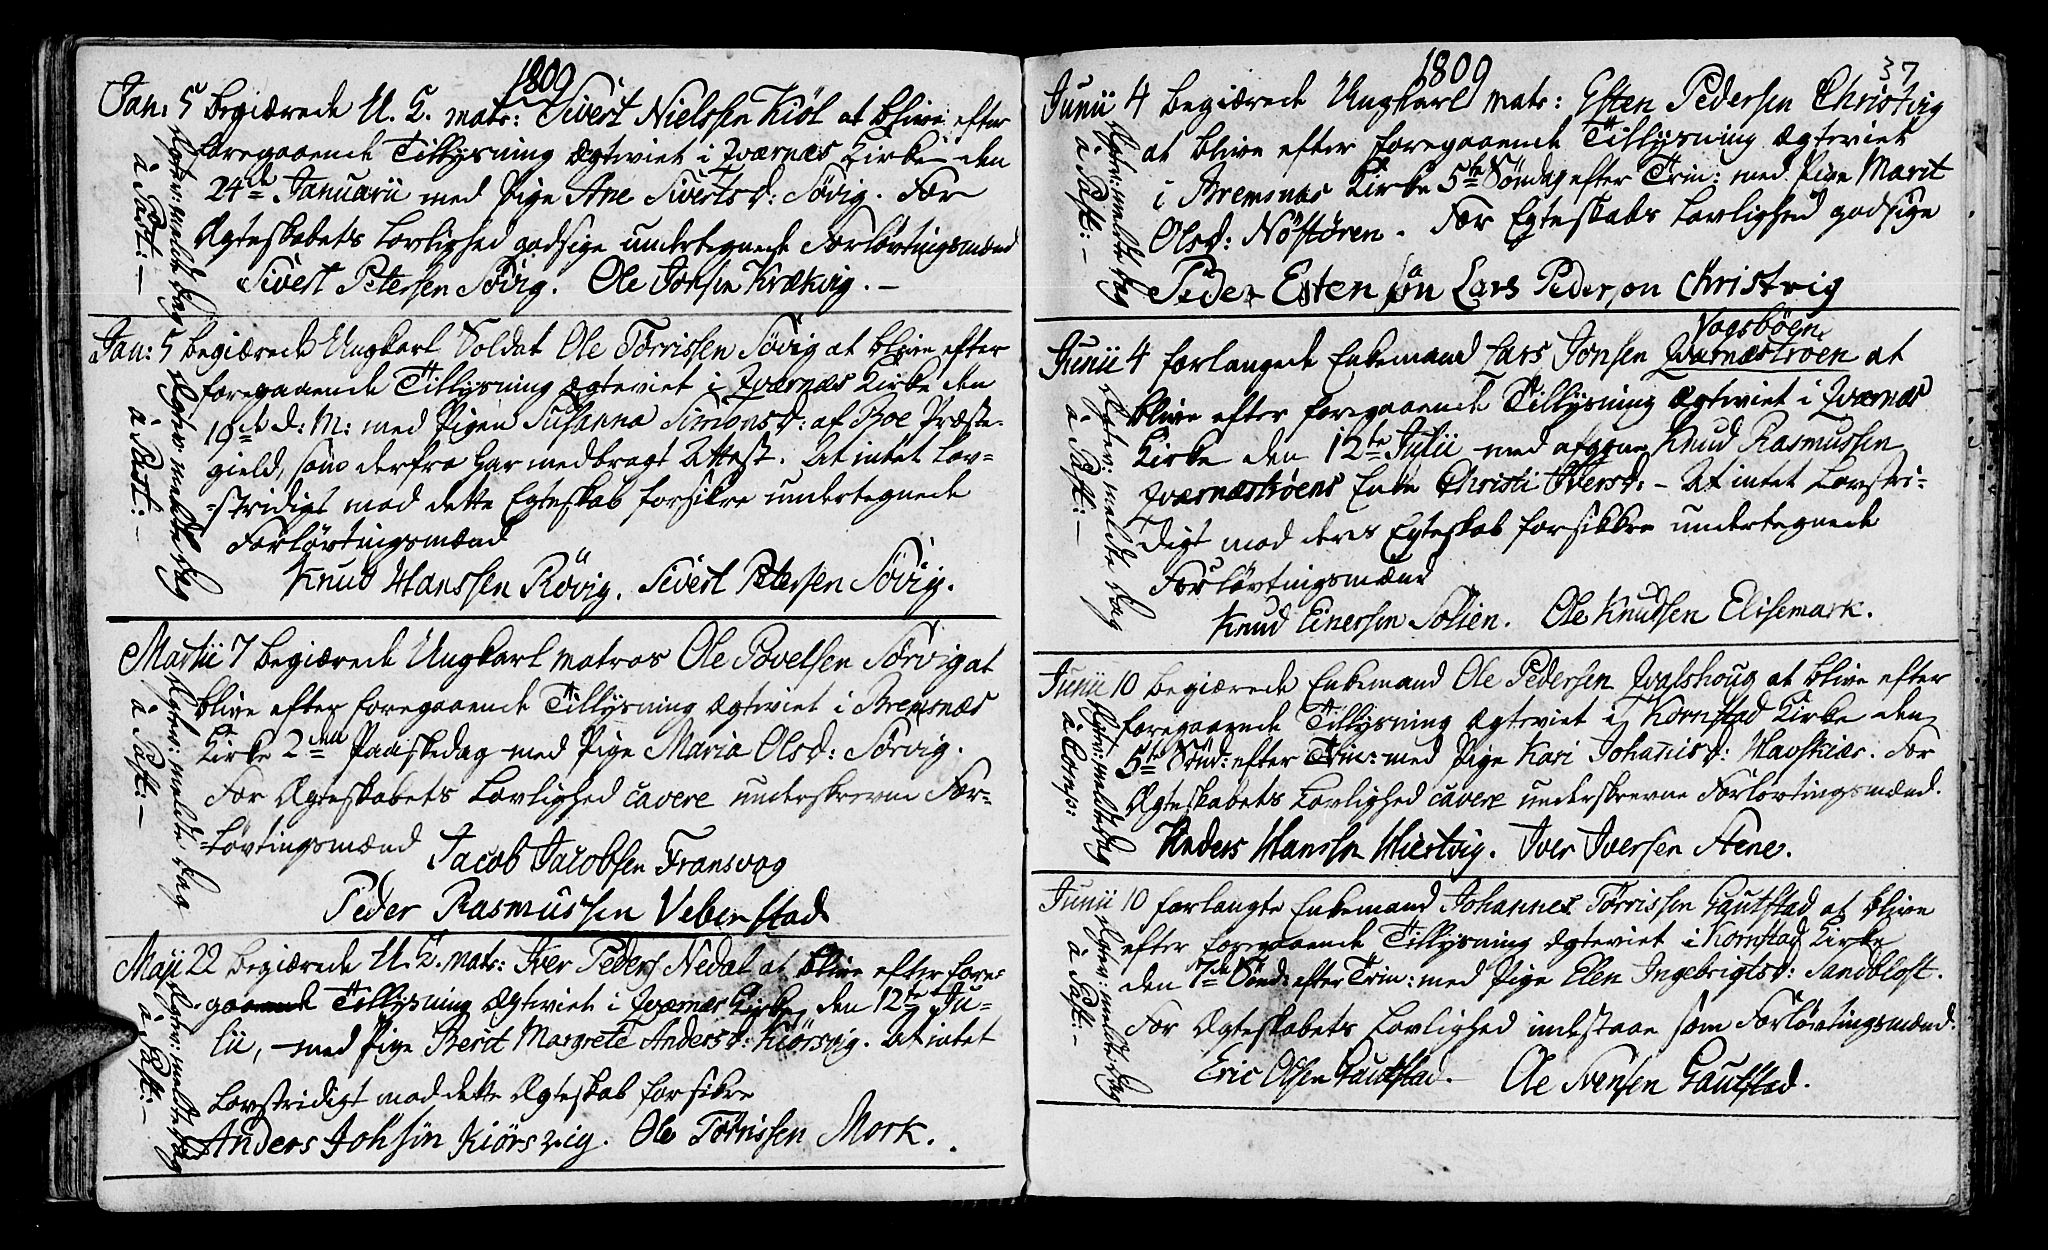 1809
Jan: 5 begiærede U. K. matr: Sivert Nielssen Kiøl at blive efter
foregaaende Tillysning ægteviet i Qværnæs Kirke den
24de Januarii med Pige Ane Sivertsd: Søvig. For
Ægteskabets Lovlighed godsige undertegnede Forlovtingsmænd
Sivert Petersen Søvig. Ole Jonsen Krækvig. –
Ægtev: meldte dag
à Past: –
Jan: 5 begiærede Ungkarl Soldat Ole Tørrissen Søvig at blive efter
foregaaende Tillysning ægteviet i Qværnæs Kirke den
19de d: M: med Pigen Susanna Simonsd: af Boe Præste-
gield, som derfra har medbragt Attest. At intet Lov-
stridigt mod dette Egteskab forsikre undertegnede
Forlovtingsmænd
Knud Hanssen Røvig. Sivert Petersen Søvig.
Ægtev: meldte dag
à Past: –
Martii 7 begiærede Ungkarl matros Ole Povelsen Sørvig at
blive efter foregaaende Tillysning ægteviet i Bremsnæs
Kirke 2den Paaskedag med Pige Maria Olsd: Sørvig.
For Ægteskabets Lovlighed cavere underskrevne For-
løvtingsmænd Jacob Jacobsen Fransvog
Peder Rasmussen Veberstad
Ægtev: meldte dag
à Past: –
Maji 22 begiærede U. K. matr: Iver Peders Nedal at blive efter fore-
gaaende Tillysning ægteviet i Qværnæs Kirke den 12te Ju-
lii, med Pige Berit Margrete Andersd: Kiørsvig. At intet
Lovstridigt mod dette Ægteskab forsikre
Anders Johsøn Kiørsvig. Ole Tørrissen Mork.
Ægtev: meldte dag
à Past: –
1809
37
Junii 4 begiærede Ungkarl matr: Esten Pedersen Christvig
at blive efter foregaaende Tillysning ægteviet
i Bremsnæs Kirke 5te Søndag efter Trin: med Pige Marit
Olsd: Nøstøren. For Egteskabs Lovlighed godsige
Peder Esten søn Lars Pederson Christvig
Ægtev: meldte dag
à Past: –
Vogsbøen
Junii 4 forlangede Enkemand Lars Jonsen Qværnæstroen at
blive efter foregaaende Tillysning ægteviet i Qværnæs
Kirke den 12te Julii med afggne Knud Rasmussen
Qværnæstrøens Enke Christi Iversd: – At intet Lovstri-
digt mod deres Egteskab forsikkre undertegnede
Forløvtingsmænd
Knud Einersen Solien. Ole Knudsen Elisemark.
Ægtev: meldte dag
à Past: –
Junii 10 begiærede Enkemand Ole Pedersen Qvalshoug at blive efter
foregaaende Tillysning ægteviet i Kornstad Kirke den
5te Sønd: efter Trin: med Pige Kari Johanisd: Havskiær. For
Ægteskabets Lovlighed cavere underskrevne Forlovtingsmænd.
Anders Hanssen Hiertvig. Iver Iversen Stene.
Ægtev: meldte dag
Junii 10 forlangte Enkemand Johannes Tørrissen Gautstad at blive
efter foregaaende Tillysning ægteviet i Kornstad Kirke
den 7de Sønd: efter Trin: med Pige Elen Ingebrigtsd: Sandblost.
For Ægteskabets Lovlighed indestaae som Forløvtingsmænd.
Eric Olsen Gautstad. – Ole Svensen Gautstad.
Ægtev: meldte dag
à Past: –